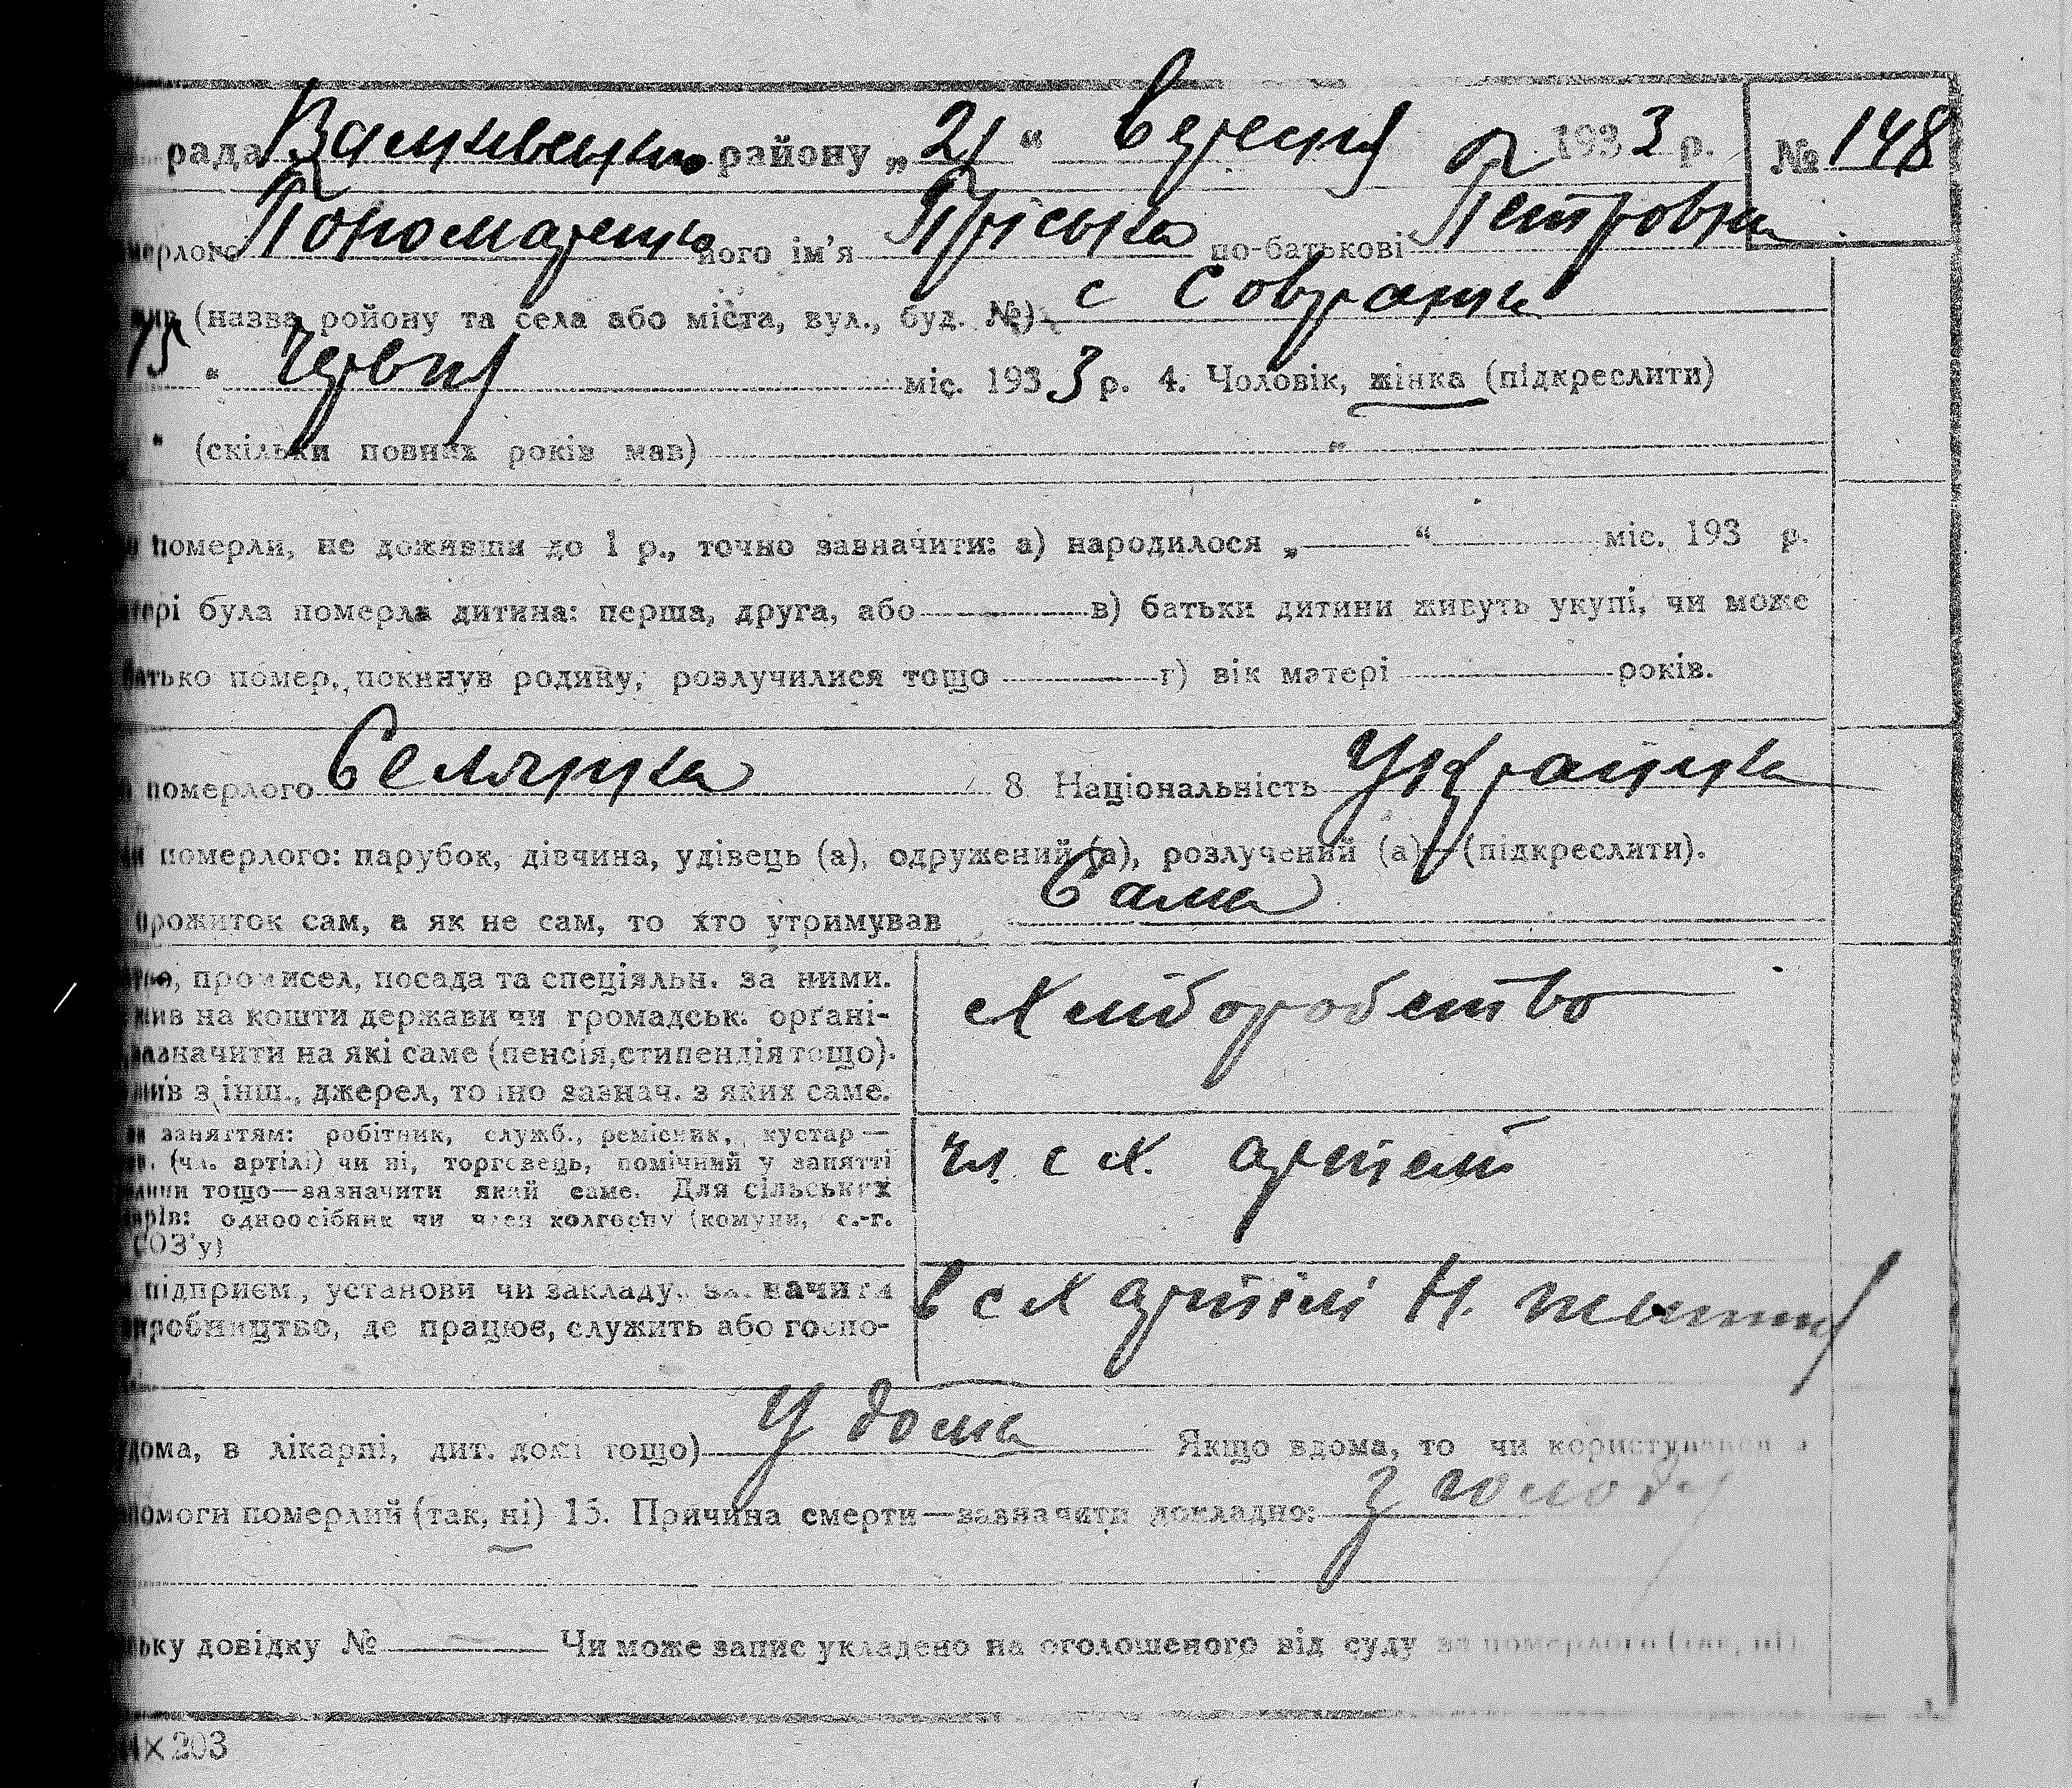 рада району „ 21 “ вересня 1933 р. № 148
мерлого Пономаренко його ім’я Пріська по-батькові Петровна
(назва ройону та села або міста, вул., буд. №) с Совранка
15 “ червня міс. 1933 р. 4. Чоловік, жінка (підкреслити)
“ (скільки повних років мав) „
померли, не доживши до 1 р., точно завначити: а) народилося „ “ міс. 193 р.
тері була померла дитина: перша, друга, або в) батьки дитини живуть укупі, чи може
батько помер, покинув родину, розлучилися тощо г) вік матері років.
померлого Селянка 8 Національність Українка
померлого: парубок, дівчина, удівець (а), одружений (а), розлучений (а) (підкреслити).
прожиток сам, а як не сам, то хто утримував Сама
промисел, посада та спеціяльн. за ними.
жив на кошти держави чи громадськ. орґані-
зазначити на які саме (пенсія, стипендія тощо).
жив з інш., джерел, точно зазнач. з яких саме.
Хліборобство
заняттям: робітник, служб., ремісник, кустар —
(чл. артілі) чи ні, торговець, помічний у занятті
тощо—зазначити який саме. Для сільських
одноосібник чи член колгоспу (комуни, с.-г.
СОЗ’у)
чл с х. артелі
підприєм., установи чи закладу, зазначити
виробництво, де працює, служить або госпо-
в с х артілі Н. життя
вдома, в лікарні, дит. домі тощо) У дома Якщо вдома, то чи користувався з
помоги померлий (так, ні) 15. Причина смерти—зазначити докладно: З голоду
ську довідку № Чи може запис укладено на оголошеного від суду за померлого (так, ні)
×203